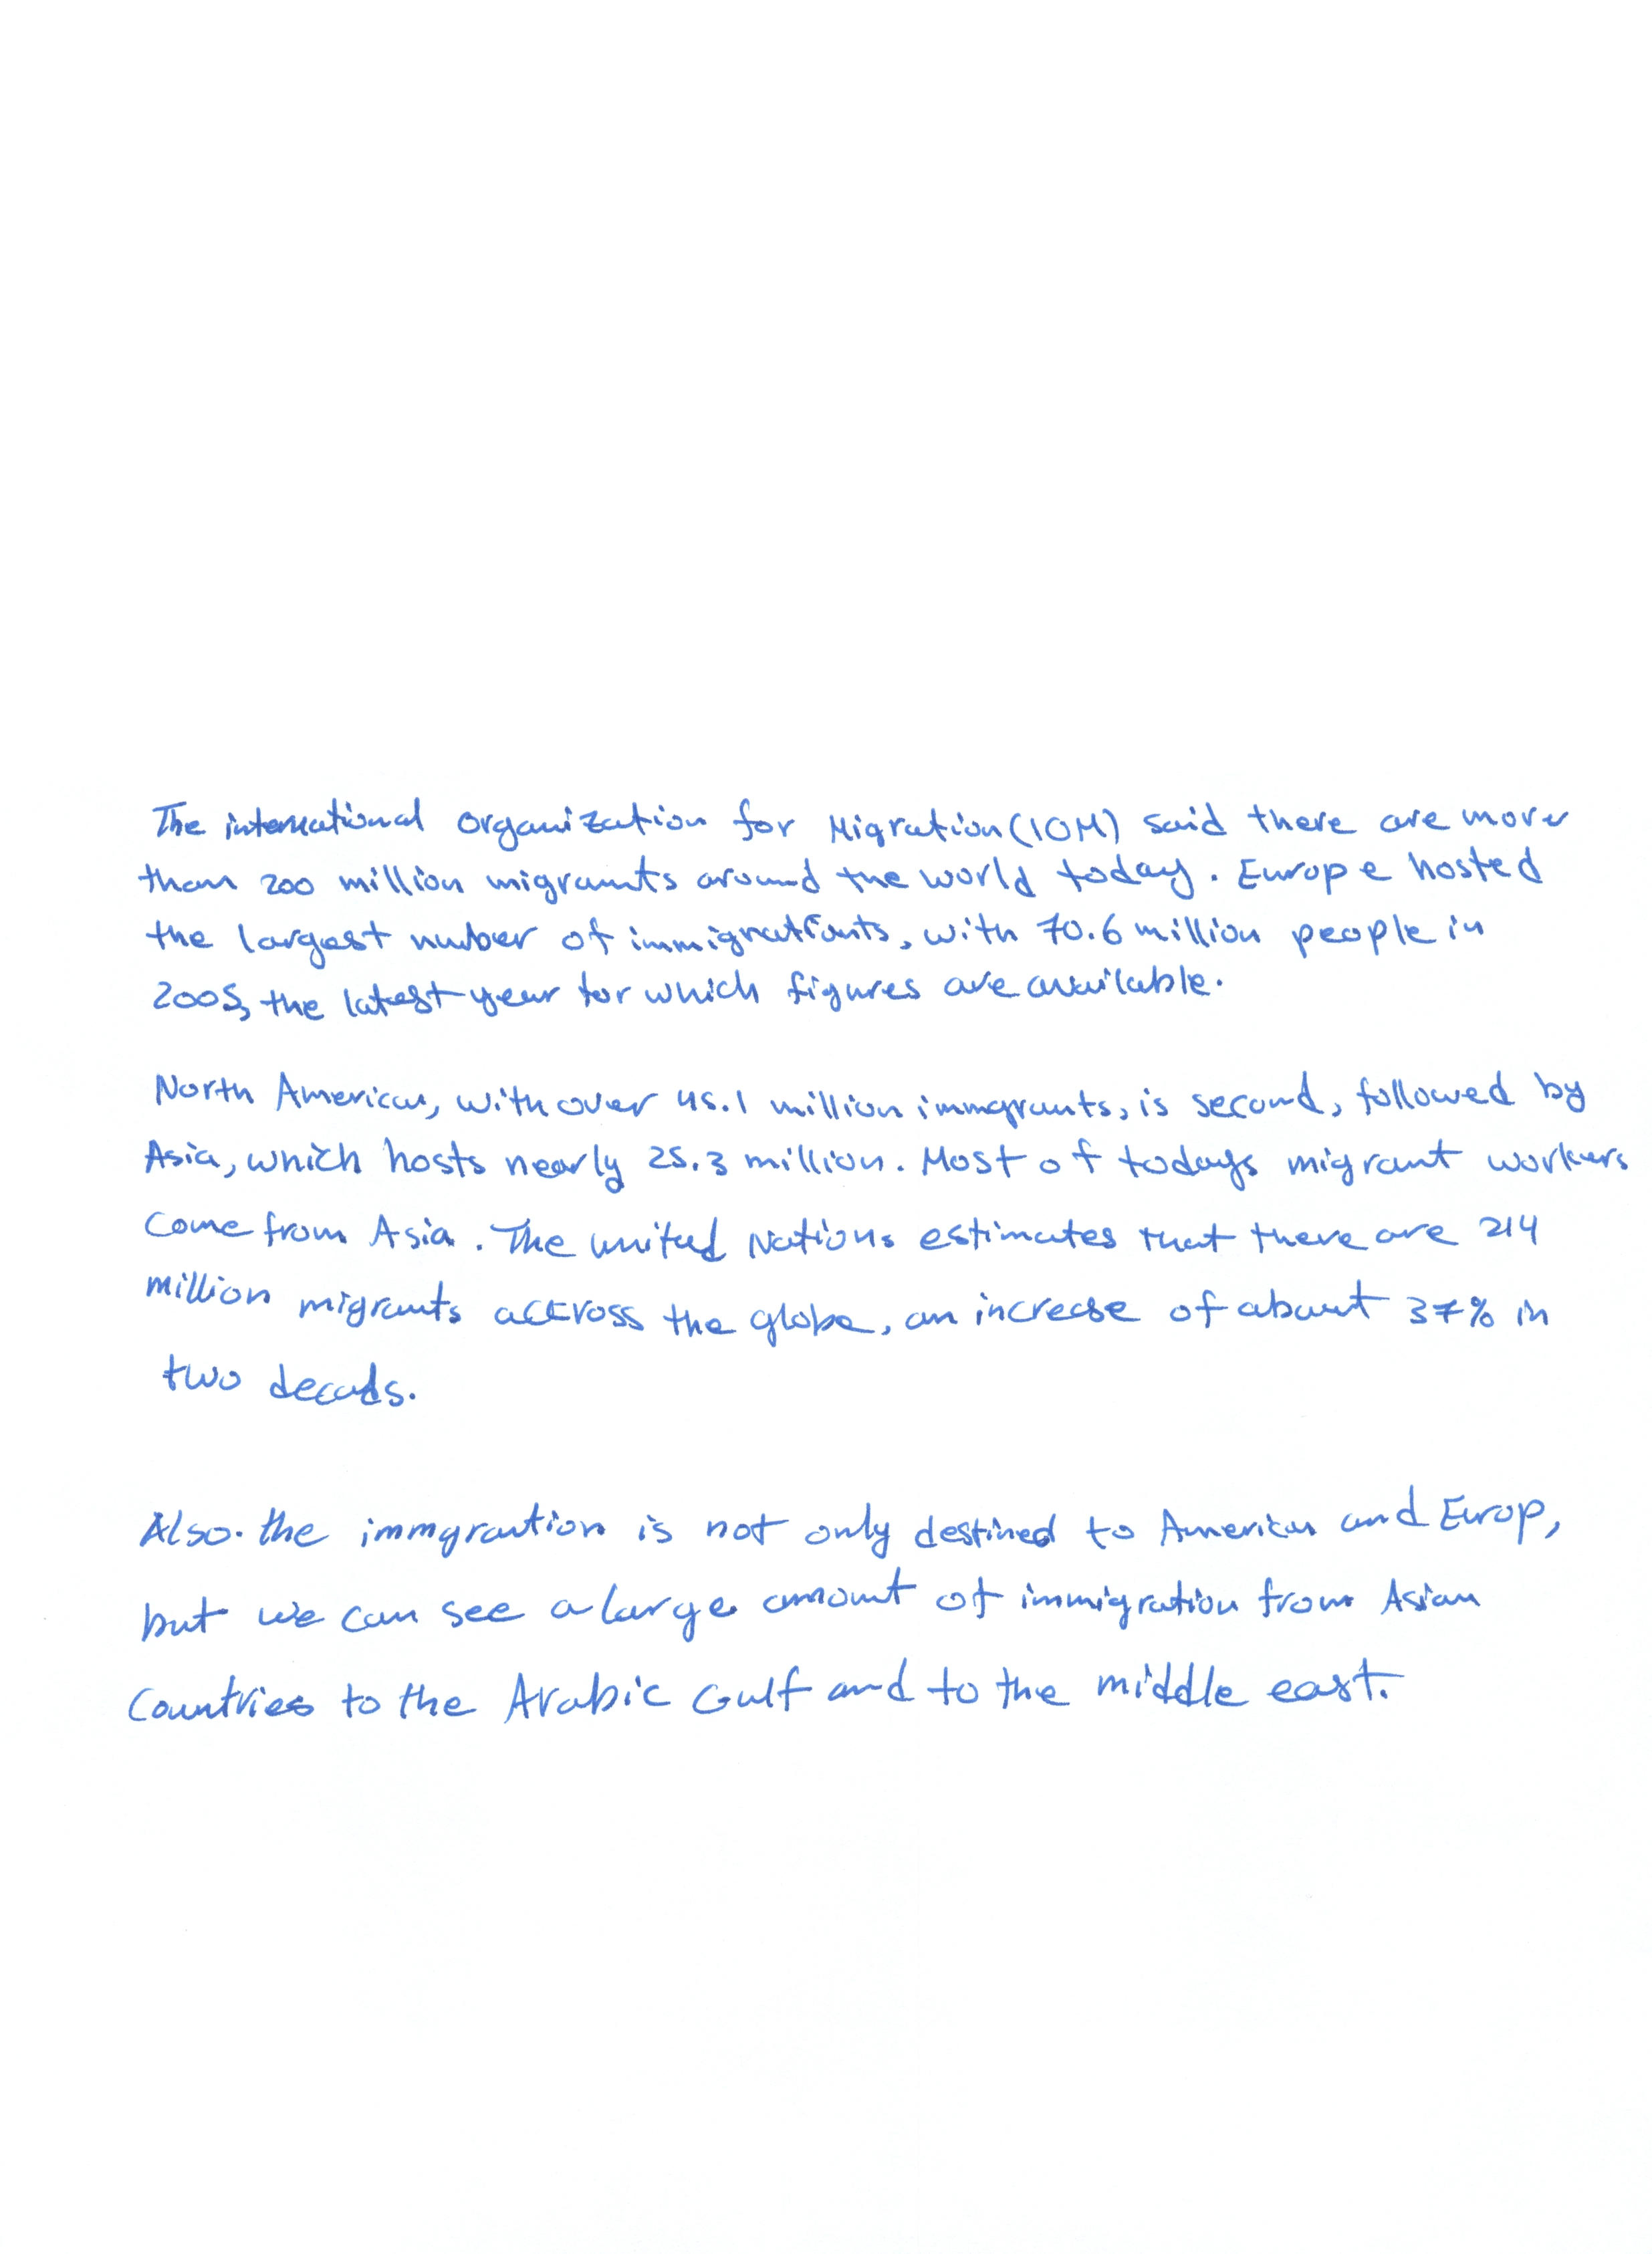 The international organization for Migration (IOM) said there are more
than 200 million migrants around the world today. Europe hosted
the largest number of immigrations, with 70.6 million people in
2005, the latest year for which figures are available.
North America, with over 45.1 million immgrants, is second, followed by
Asia, which hosts nearly 25.3 million. Most of todays migrant workers
come from Asia. The united Nations estimates that there are 214
million migrants accross the globe, an increase of about 37% in
two decads.
Also. the immgration is not only destined to America and Europ,
but we can see a large amount of immigration from Asian
Countries to the Arabic Gulf and to the middle east.